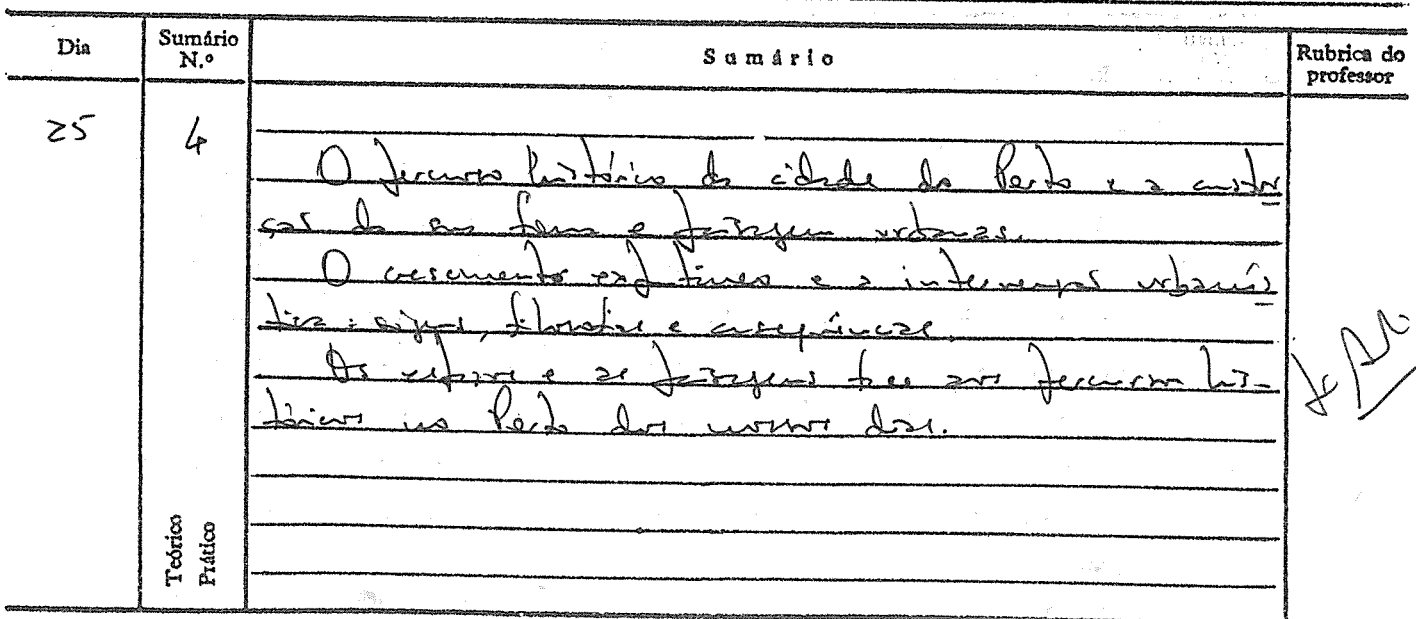 Dia
Sumário N.º
Sumário
Rubrica do professor
25
4
O percurso histórico da cidade do Porto e a constru
ção da sua forma e paisagem urbanas.
O crescimento e a intervenção urbanís
tica: , filosofias e consequências.
Os e as paisagens dos percursos his-
tóricos no Porto dos nossos dias.
Teórico
Prático